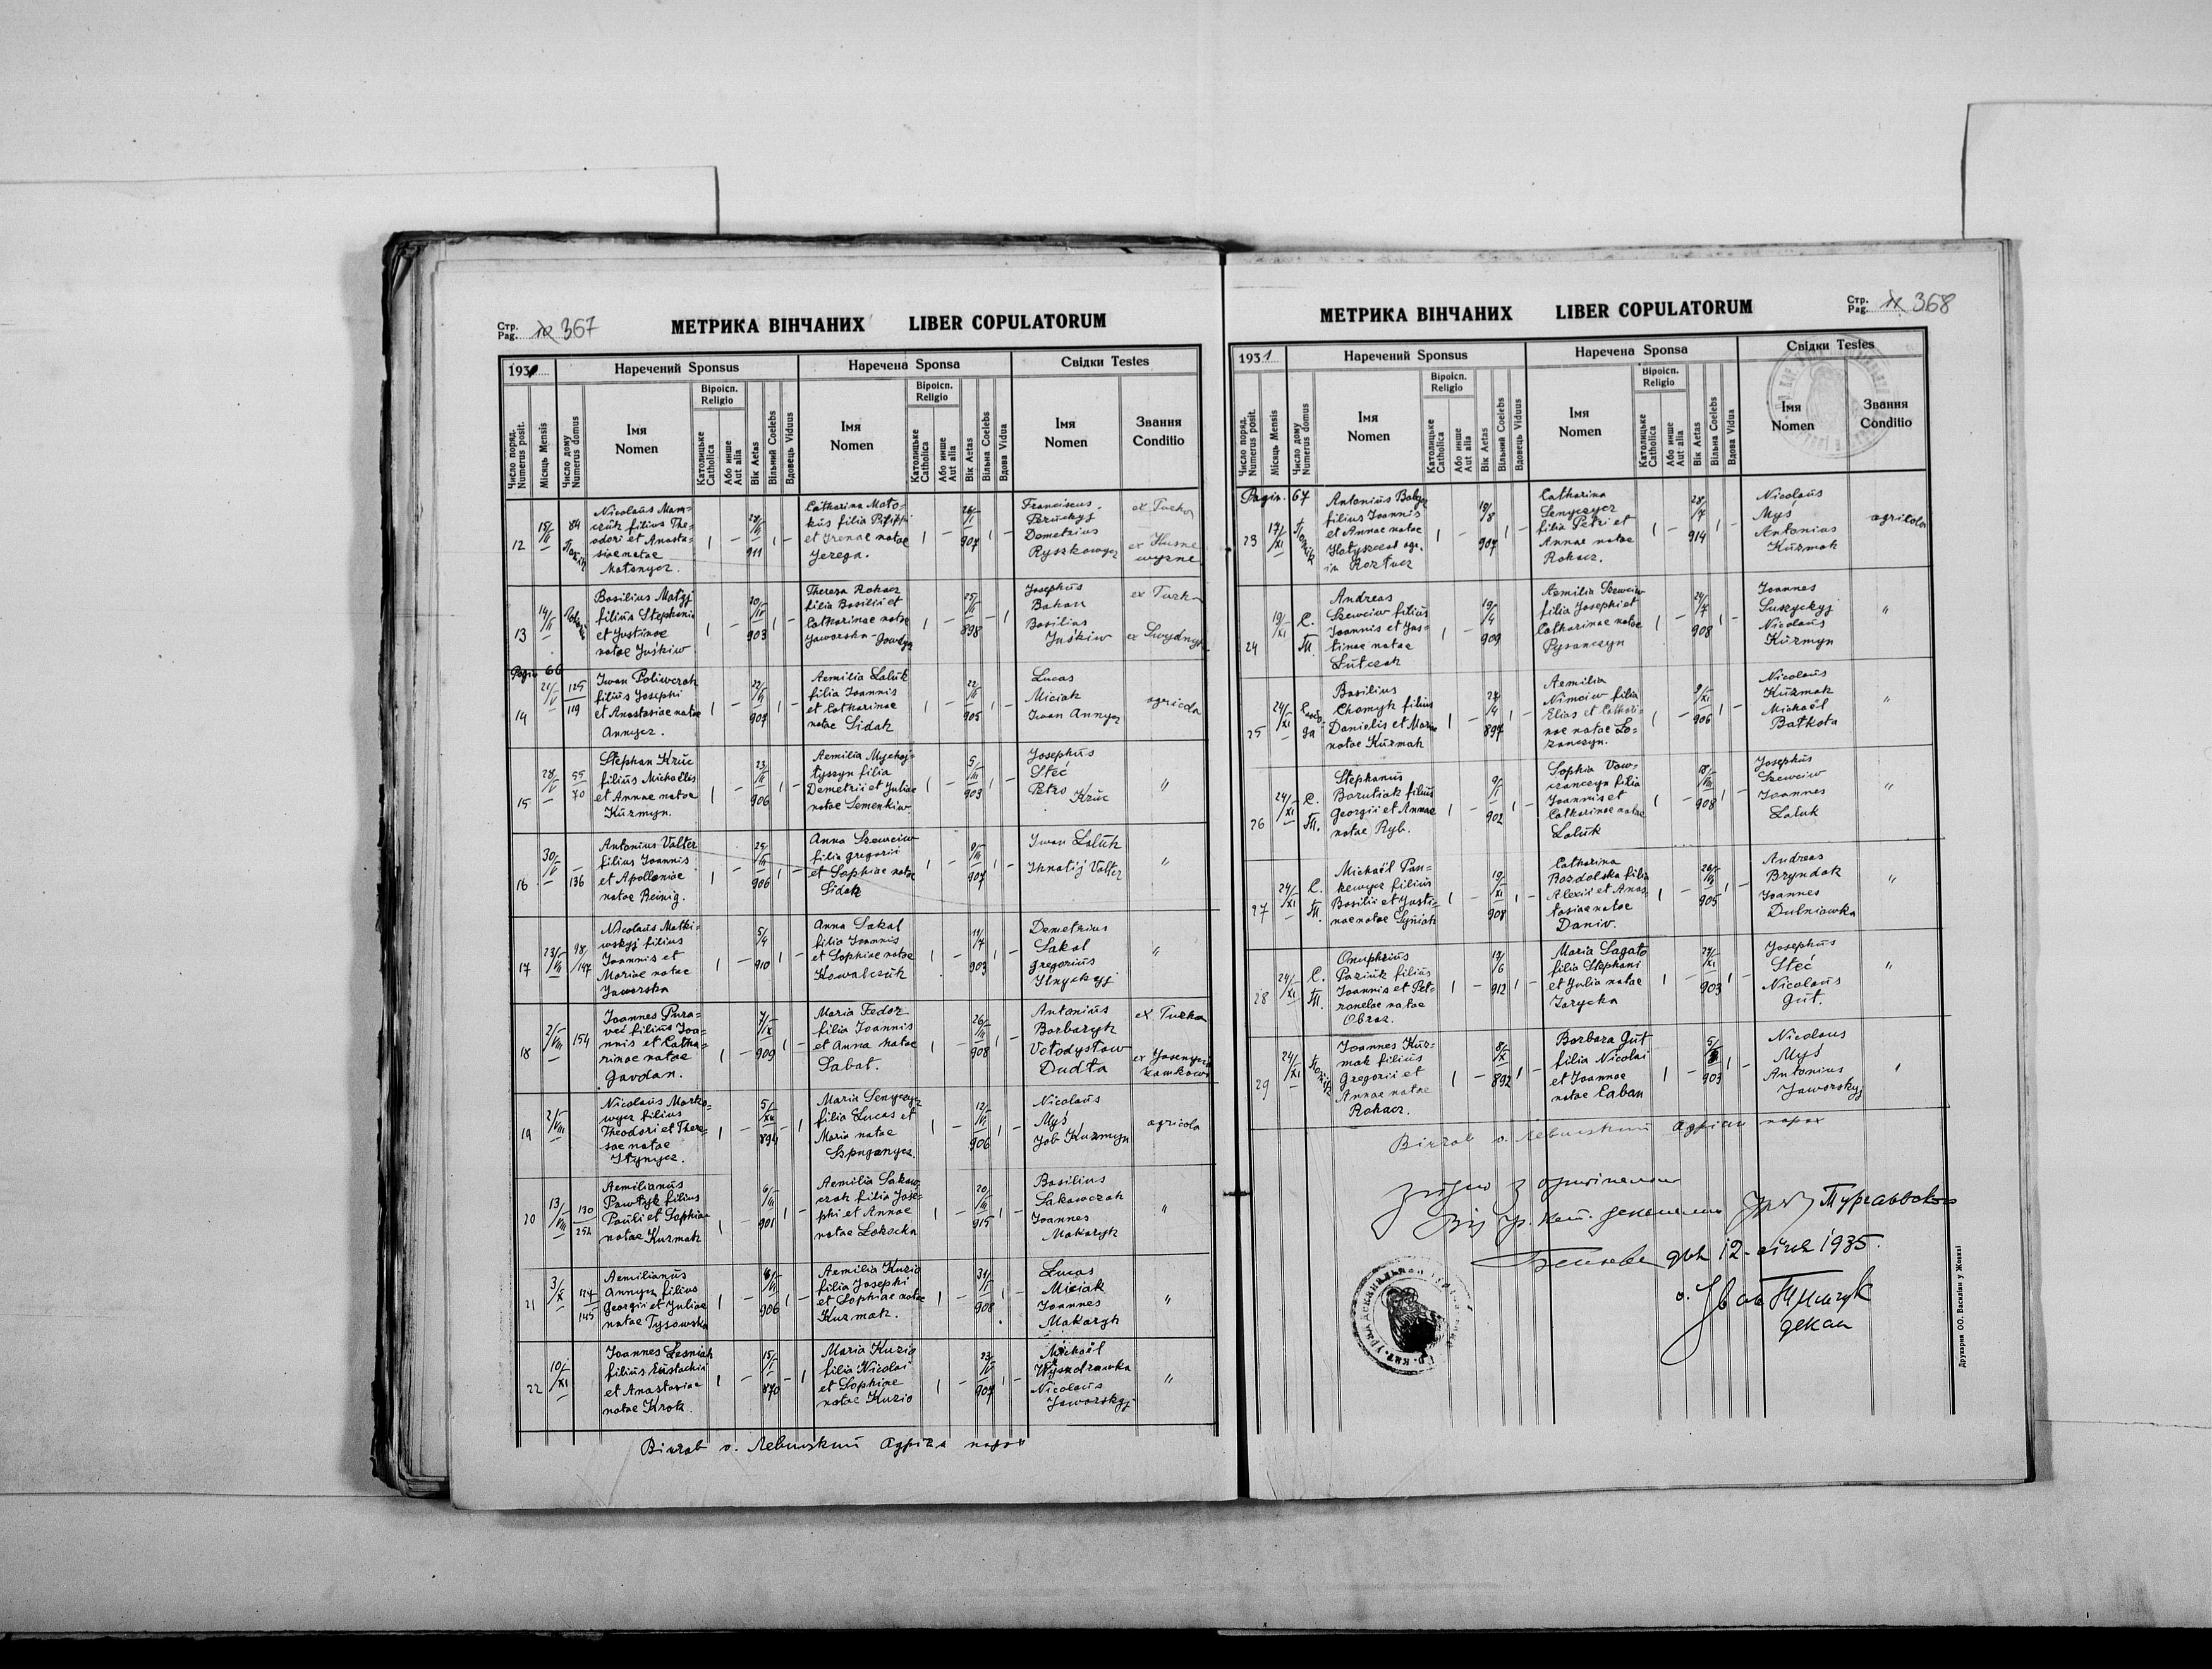 Стр. Pag. 367
МЕТРИКА ВІНЧАНИХ LIBER COPULATORUM
1931
Наречений Sponsus
Наречена Sponsa
Свідки Testes
Число поряд. Numerus posit.
Місяць Mensis
Число дому Numerus domus
Імя Nomen
Віроісп. Religio
Католицьке Catholica
Або инше Aut alia
Вік Aetas
Вільний Coelebs
Вдовець Viduus
Імя Nomen
Віроісп. Religio
Католицьке Catholica
Або инше Aut alia
Вік Aetas
Вільна Coelebs
Вдова Vidua
Імя Nomen
Звання Conditio
12
15/II
84
Nicolaus Mam-
czuk filius The-
odori et Anasta-
siae natae
Matanycz.
911
Catharina Mato-
kus filia Philippi
et Irenae natae
Jerega.
907
Franciscus
Bruckyj
Demetrius
Ryszkowycz
ex Turka
13
14/II
Basilius Matyj
filius Stephani
et Justinae
natae Juśkiw
903
Theresa Rohacz
filia Basilii et
Catharinae natae
Jaworska
898
Josephus
Bahan
Basilius
Juśkiw
ex Turka
Pagin 66
14
21/V
125
119
Iwan Poliwczak
filius Josephi
et Anastasiae natae
Annycz.
907
Aemilia Laluk
filia Ioannis
et Catharinae
natae Sidak
905
Lucas
Miciak
Iwan Annycz
agricola
15
28/V
55
70
Stephan Kruc
filius Michaelis
et Annae natae
Kuzmyn.
906
Aemilia Mychaj-
tyszyn filia
Demetrii et Juliae
natae Semenkiw
903
Josephus
Steć
Petro Kruc
"
16
30/V
136
Antonius Valter
filius Ioannis
et Apolloniae
natae Reinig.
906
Anna Szewciw
filia Gregorii
et Sophiae natae
Sidak
907
Iwan Laluk
Ihnatij Valter
"
17
23/VI
98/147
Nicolaus Matki-
wskyj filius
Ioannis et
Mariae natae
Jaworska
910
Anna Sakal
filia Ioannis
et Sophiae natae
Kowalczuk
903
Demetrius
Sakal
Gregorius
Ilnyckyj
"
18
2/VIII
154
Ioannes Pura-
vec filius Ioa-
nnis et Catha-
rinae natae
Gavdan.
909
Maria Fedor
filia Ioannis
et Anna natae
Sabat.
908
Antonius
Barbaryk
Votodystaw
Dudta
ex Turka
19
2/VIII
Nicolaus Marko-
wycz filius
Theodori et There-
sae natae
894
Maria Senyczycz
filia Lucas et
Maria natae
906
Nicolaus
Myś
Job Kuzmyn
agricola
20
13/VIII
130
252
Aemilianus
Pawtyk filius
Pauli et Sophiae
natae Kuzmak
901
Aemilia Sakow-
czak filia Jose-
phi et Annae
natae Lokocka
915
Basilius
Sakowczak
Ioannes
Makaryk
"
21
3/X
124
145
Aemilianus
Annycz filius
Georgii et Juliae
natae Tysowska
906
Aemilia Kuzio
filia Josephi
et Sophiae natae
Kuzmak.
908
Lucas
Miciak
Ioannes
Makaryk
"
22
10/XI
Ioannes Lesniak
filius Eustachii
et Anastasiae
natae Krok.
870
Maria Kuzio
filia Nicolai
et Sophiae
natae Kuzio
907
Michaël
Wysadzawka
Nicolaus
Jaworskyj
"
Вінчав о. Левицкий Адріан парох
Стр. Pag. 368
МЕТРИКА ВІНЧАНИХ LIBER COPULATORUM
1931
Наречений Sponsus
Наречена Sponsa
Свідки Testes
Число поряд. Numerus posit.
Місяць Mensis
Число дому Numerus domus
Імя Nomen
Віроісп. Religio
Католицьке Catholica
Або инше Aut alia
Вік Aetas
Вільний Coelebs
Вдовець Viduus
Імя Nomen
Віроісп. Religio
Католицьке Catholica
Або инше Aut alia
Вік Aetas
Вільна Coelebs
Вдова Vidua
Імя Nomen
Звання Conditio
Pagin. 67
23
17/XI
Antonius
filius Ioannis
et Annae natae
in Roztucz
907
Catharina
Senyczycz
filia Petri et
Annae natae
Rohacz.
914
Nicolaus
Myś
Antonius
Kuzmak
agricola
24
19/XI
Andreas
Szewciw filius
Ioannis et Jus-
tinae natae
Lutczak
909
Aemilia Szewciw
filia Josephi et
Catharinae natae
Pysanczyn
908
Ioannes
Suszyckyj
Nicolaus
Kuzmyn
"
25
24/XI
Basilius
Chomyk filius
Danielis et Mariae
natae Kuzmak
897
Aemilia
Nimciw filia
Elias et Cathari-
nae natae Lo-
zanczyn.
906
Nicolaus
Kuzmak
Michaël
Batkota
"
26
24/XI
Stephanus
Barutiak filius
Georgii et Annae
natae Ryb.
902
Sophia Vow-
czanczyn filia
Ioannis et
Catharinae natae
Laluk
908
Josephus
Szewciw
Ioannes
Laluk
"
27
24/XI
Michaël Pan-
kewycz filius
Basilii et Justi-
nae natae Syniak
908
Catharina
Bozdolska filia
Alexii et Anas-
tasiae natae
Daniv.
905
Andreas
Bryndak
Ioannes
Dulniawka
"
28
24/XI
Onuphrius
Paziuk filius
Ioannis et Pet-
ronelae natae
Obraz.
912
Maria Sagato
filia Stephani
et Julia natae
Zarycka
903
Josephus
Steć
Nicolaus
Gut.
"
29
24/XI
Ioannes Kuz-
mak filius
Gregorii et
Annae natae
Rohacz.
892
Barbara Gut
filia Nicolai
et Ioannae
natae Caban
903
Nicolaus
Myś
Antonius
Jaworskyj
"
Вінчав о. Левицкий Адріан парох
Згідно з оригіналом
дня 12 січня 1935.
о. Іван
декан
Друкарня ОО. Василіян у Жовкві